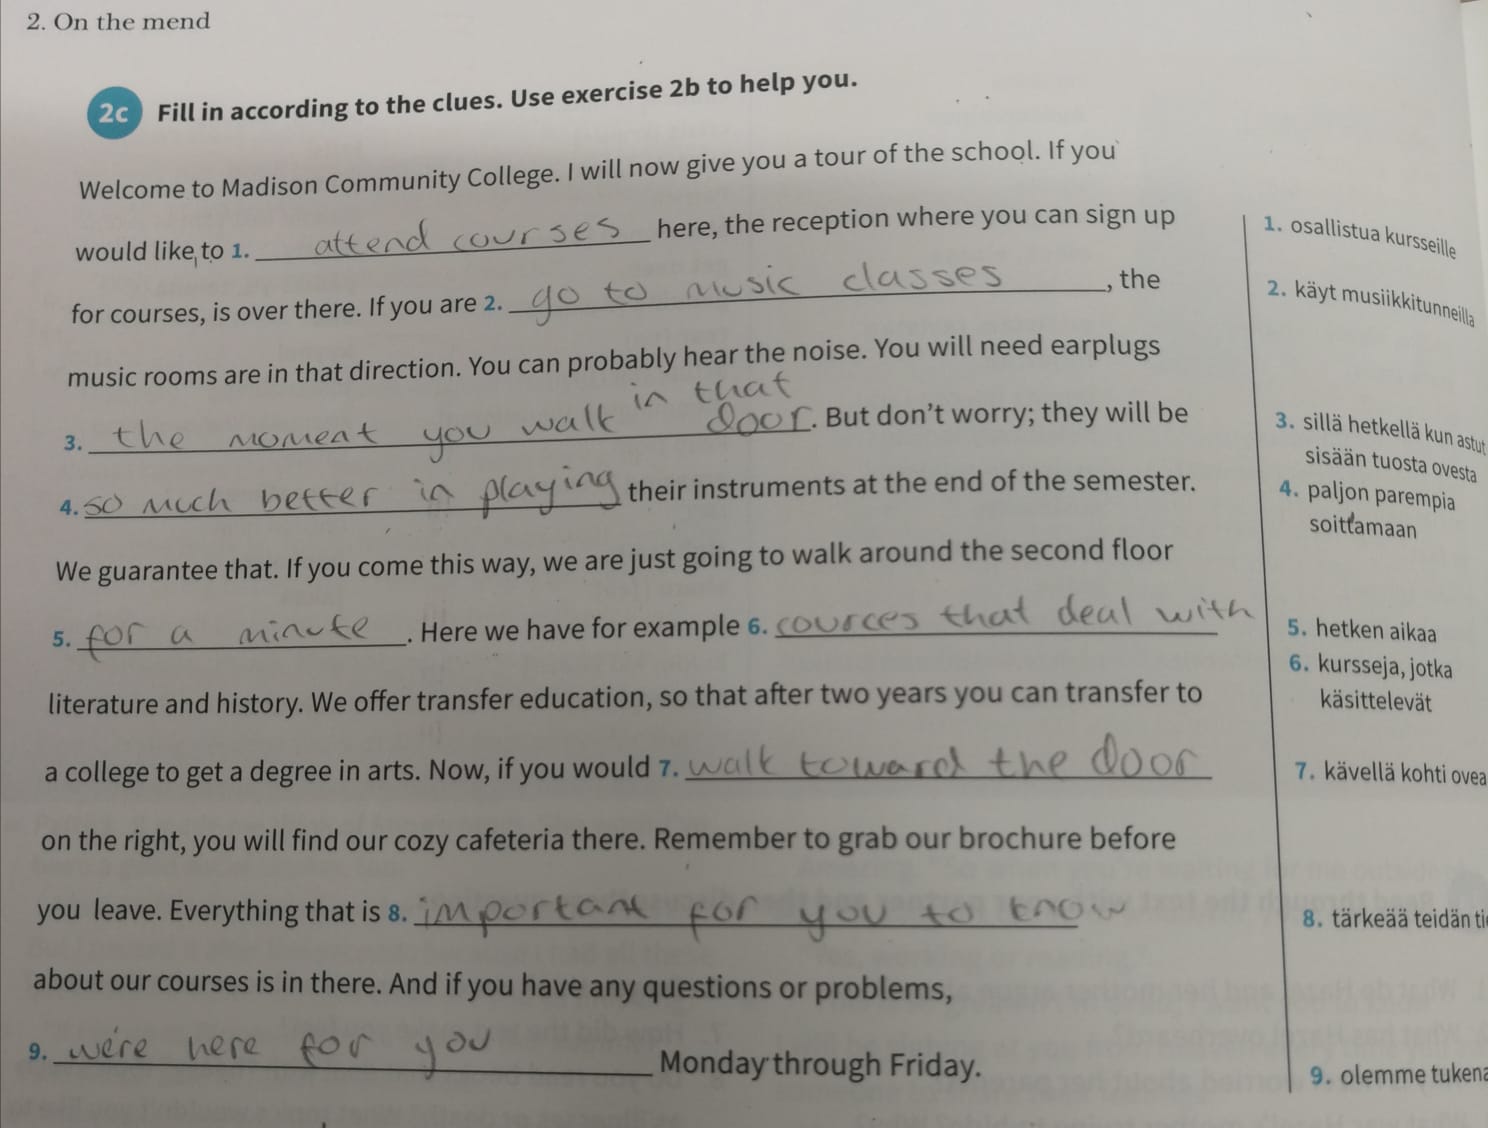 2. On the mend
2c Fill in according to the clues. Use exercise 2b to help you.
Welcome to Madison Community College. I will now give you a tour of the school. If you
would like to 1. attend courses here, the reception where you can sign up
1. osallistua kursseille
for courses, is over there. If you are 2. go to music classes, the
2. käyt musiikkitunneilla
music rooms are in that direction. You can probably hear the noise. You will need earplugs
in that
3. the moment you walk door. But don't worry; they will be
3. sillä hetkellä kun astut
sisään tuosta ovesta
4. so much better in playing their instruments at the end of the semester.
4. paljon parempia
soittamaan
We guarantee that. If you come this way, we are just going to walk around the second floor
5. for a minute. Here we have for example 6. cources that deal with
5. hetken aikaa
6. kursseja, jotka
käsittelevät
literature and history. We offer transfer education, so that after two years you can transfer to
a college to get a degree in arts. Now, if you would 7. walk toward the door
7. kävellä kohti ovea
on the right, you will find our cozy cafeteria there. Remember to grab our brochure before
you leave. Everything that is 8. important for you to know
8. tärkeää teidän
about our courses is in there. And if you have any questions or problems,
9. we're here for you Monday through Friday.
9. olemme tukena